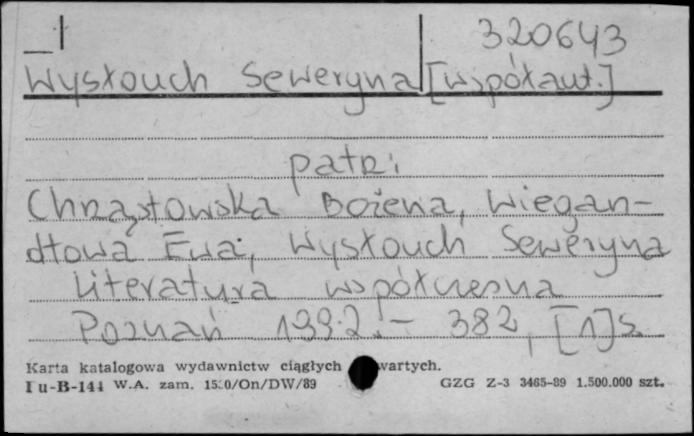 320643
Wysłouch Seweryna [współaut.]
patrz
Chrząstowska Bożena, Wiegan-
dtowa Ewa, Wysłouch Seweryna
Literatura współczesna
Poznań 1992.- 382, [1] s.
Karta katalogowa wydawnictw ciągłych wartych.
Pu-B-144 W.A. zam. 1520/On/DW/89 GZG Z-3 3465-89 1.500.000 szt.